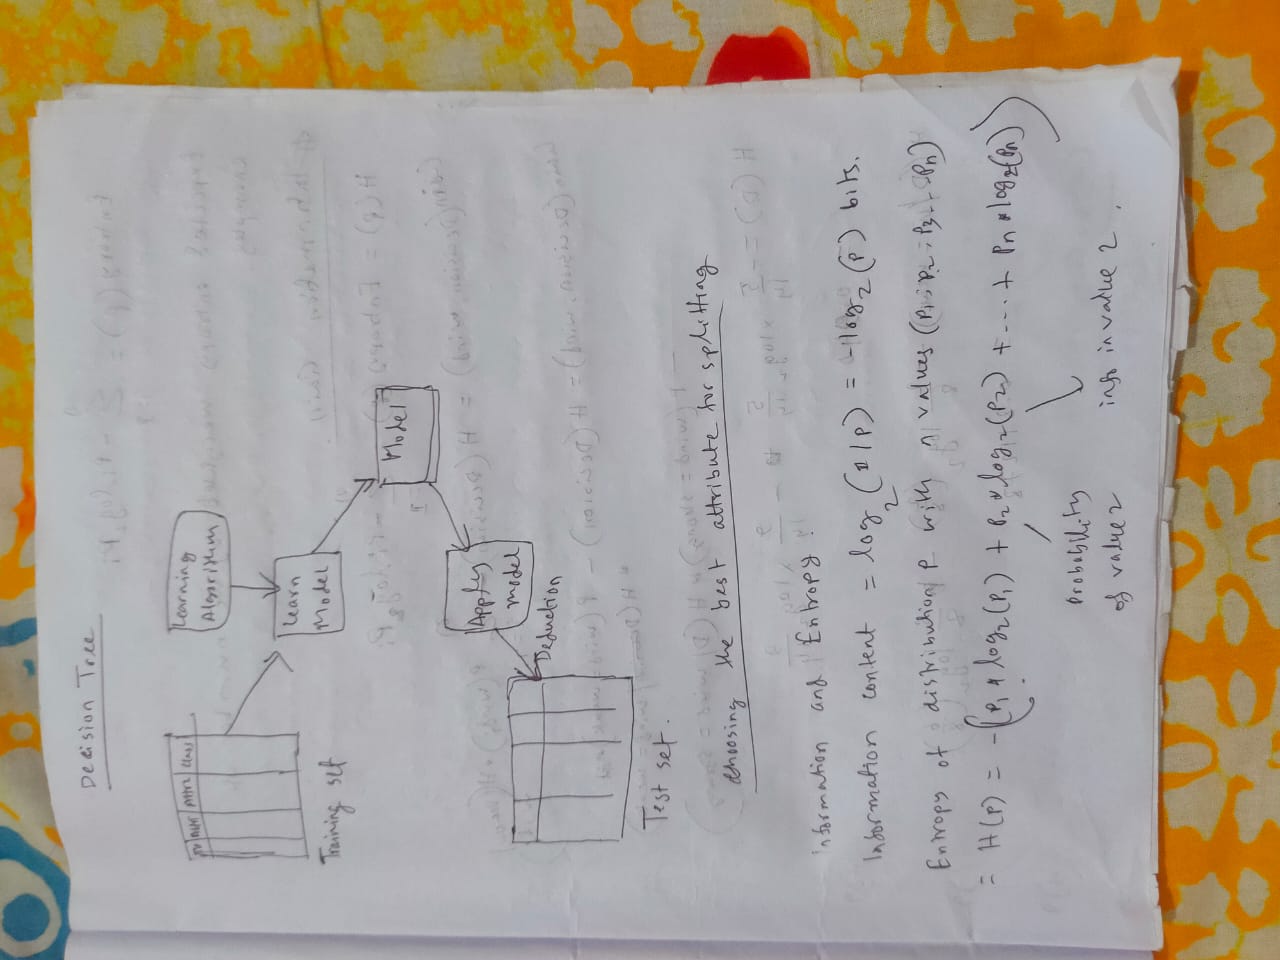 Decision Tree
Attr2 Class
Learning
Algorithm
Training set
Learn
Model
Model
Apply
model
Deduction
Test set.
choosing the best attribute for splitting
Information and Entropy:
Information content = log₂ (1/p) = -log₂ (p) bits.
Entropy of distribution P with n values (P₁, P₂, P₃... Pₙ)
= H(p) = -(P₁ * log₂(P₁) + P₂ * log₂(P₂) + .... + Pn * log₂(Pn))
Probability
of value 2
info in value 2.